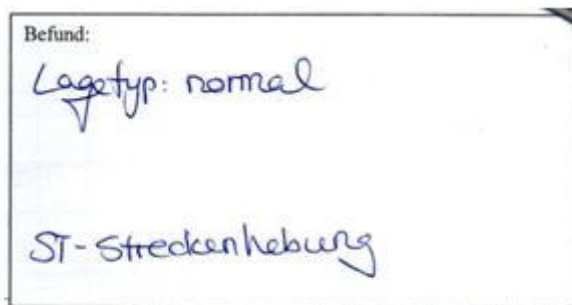 Befund:
Lagetyp: normal
ST-Streckenhebung